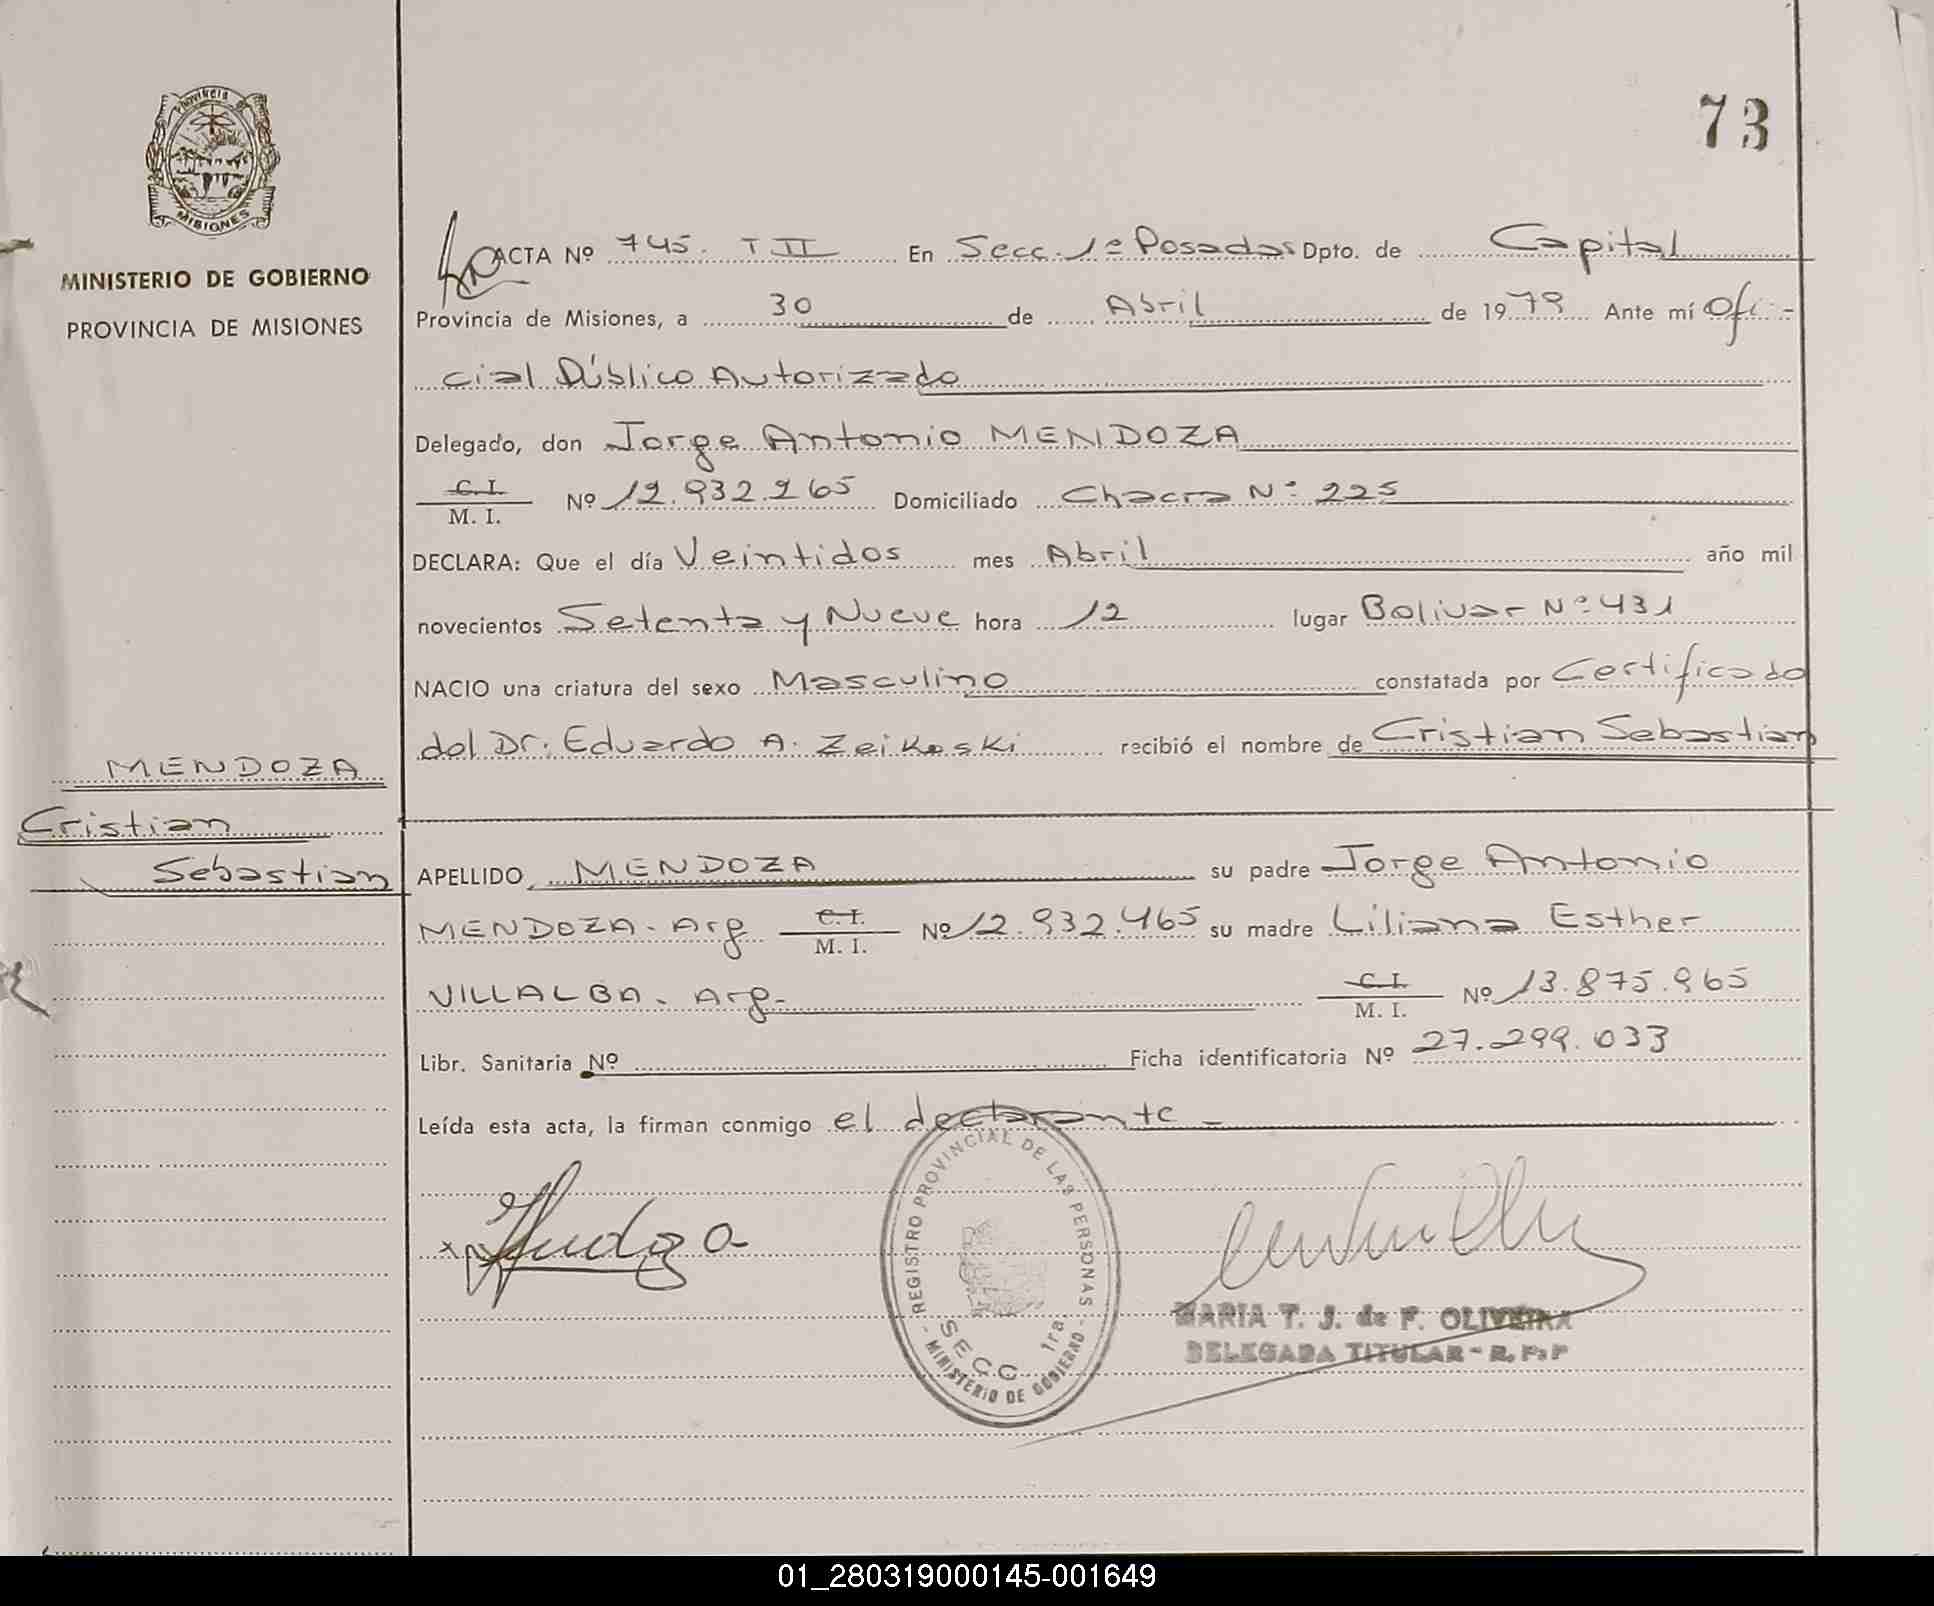 73
Provincia de
MISIONES
MINISTERIO DE GOBIERNO
PROVINCIA DE MISIONES
ACTA Nº 745. T II En Secc. 1ª Posadas Dpto. de Capital
Provincia de Misiones, a 30 de Abril de 1979 Ante mí Ofi-
cial Público Autorizado
Delegado, don Jorge Antonio MENDOZA
C. I.
M. I. Nº 12.932.265 Domiciliado Chacra Nº 225
DECLARA: Que el día Veintidos mes Abril año mil
novecientos Setenta y Nueve hora 12 lugar Bolivar Nº 431
NACIO una criatura del sexo Masculino constatada por Certificado
del Dr. Eduardo A. Zeikoski recibió el nombre de Cristian Sebastian
MENDOZA
Cristian
Sebastian
APELLIDO MENDOZA su padre Jorge Antonio
MENDOZA - Arg C. I. M. I. Nº 12.932.465 su madre Liliana Esther
VILLALBA - Arg - C. I. M. I. Nº 13.875.965
Libr. Sanitaria Nº Ficha identificatoria Nº 27.299.033
Leída esta acta, la firman conmigo el declarante
REGISTRO PROVINCIAL DE LAS PERSONAS
SECC. 1ra.
- MINISTERIO DE GOBIERNO -
MARIA T. J. de F. OLIVEIRA
DELEGADA TITULAR - R. P. P
01_280319000145-001649